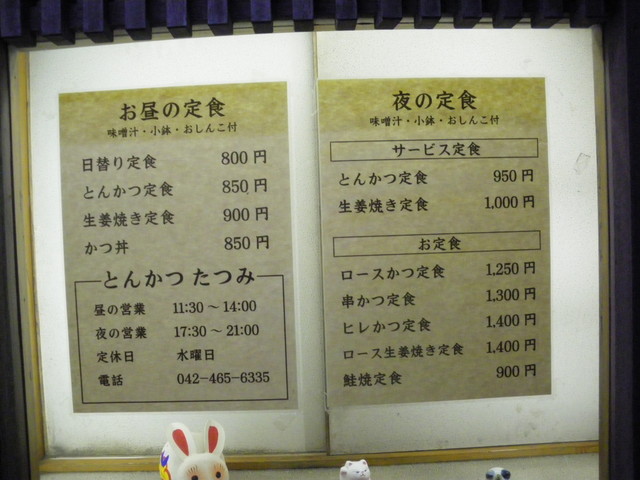 お昼の定食
味噌汁・小鉢・おしんこ付
日替り定食 800円
とんかつ定食 850円
生姜焼き定食 900円
かつ丼 850円
とんかつ たつみ
昼の営業 11:30～14:00
夜の営業 17:30～21:00
定休日 水曜日
電話 042-465-6335
夜の定食
味噌汁・小鉢・おしんこ付
サービス定食
とんかつ定食 950円
生姜焼き定食 1,000円
お定食
ロースかつ定食 1,250円
串かつ定食 1,300円
ヒレかつ定食 1,400円
ロース生姜焼き定食 1,400円
鮭焼定食 900円